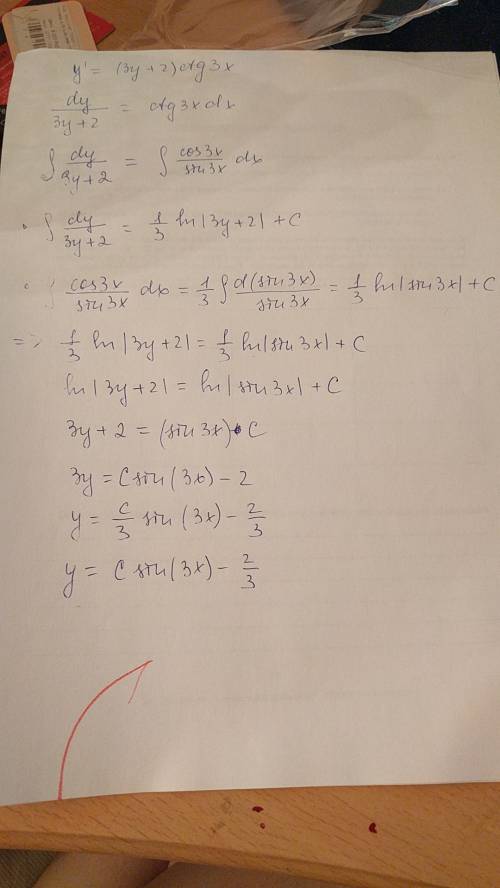 y' = (3y+2)ctg3x
dy/(3y+2) = ctg3x dx
∫ dy/(3y+2) = ∫ cos3x/sin3x dx
• ∫ dy/(3y+2) = 1/3 ln|3y+2| + C
• ∫ cos3x/sin3x dx = 1/3 ∫ d(sin3x)/sin3x = 1/3 ln|sin3x| + C
=> 1/3 ln|3y+2| = 1/3 ln|sin3x| + C
ln|3y+2| = ln|sin3x| + C
3y+2 = (sin3x)·C
3y = C sin(3x) - 2
y = C/3 sin(3x) - 2/3
y = C sin(3x) - 2/3